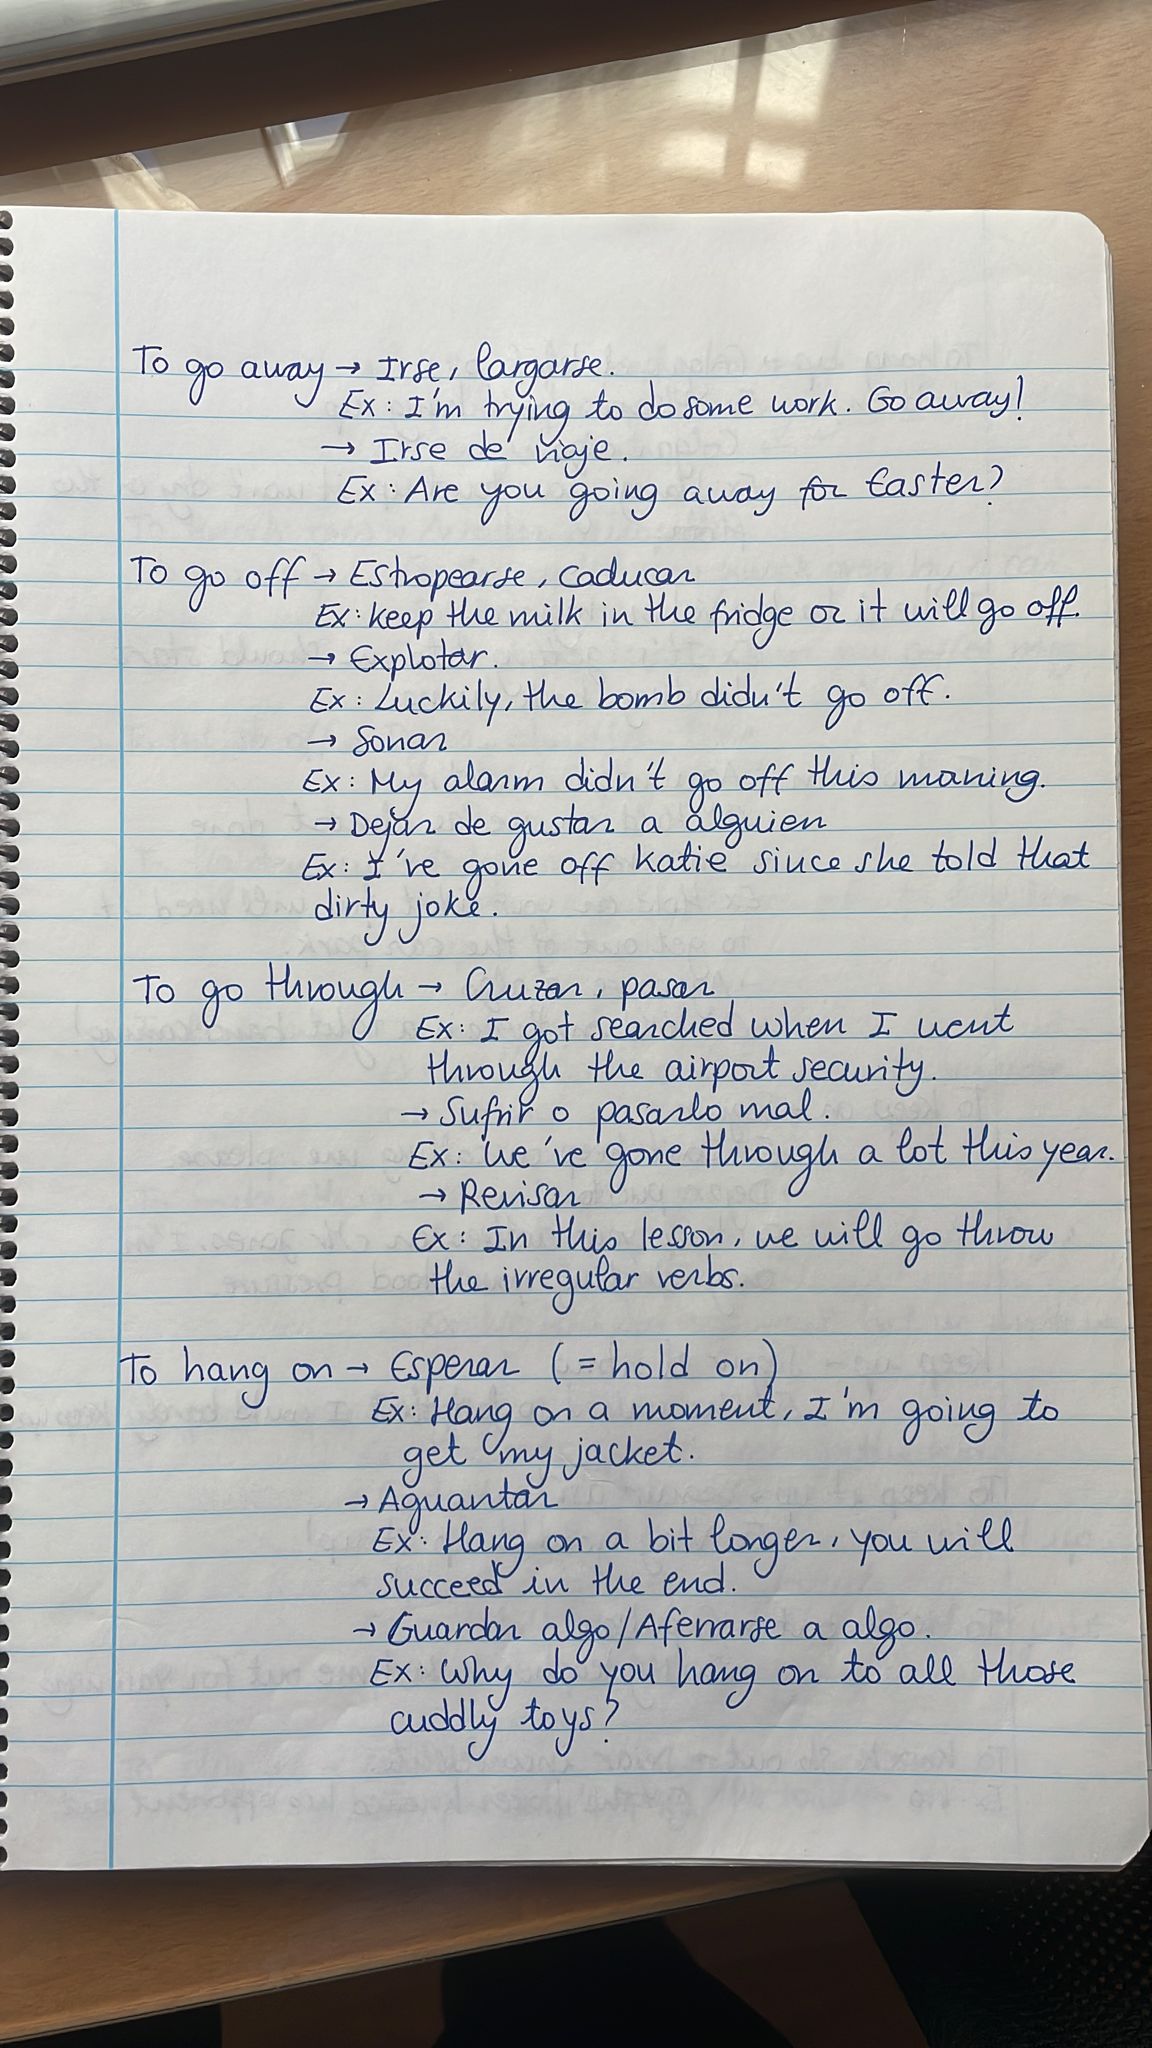 To go away → Irse, largarse.
Ex: I'm trying to do some work. Go away!
→ Irse de viaje.
Ex: Are you going away for Easter?
To go off → Estropearse, caducar
Ex: keep the milk in the fridge or it will go off.
→ Explotar.
Ex: Luckily, the bomb didn't go off.
→ Sonar
Ex: My alarm didn't go off this morning.
→ Dejar de gustar a alguien
Ex: I've gone off Katie since she told that
dirty joke.
To go through → Cruzar, pasar
Ex: I got searched when I went
through the airport security.
→ Sufrir o pasarlo mal.
Ex: We've gone through a lot this year.
→ Revisar
Ex: In this lesson, we will go throw
the irregular verbs.
To hang on → Esperar (= hold on)
Ex: Hang on a moment, I'm going to
get my jacket.
→ Aguantar
Ex: Hang on a bit longer, you will
succeed in the end.
→ Guardar algo/Aferrarse a algo.
Ex: Why do you hang on to all those
cuddly toys?